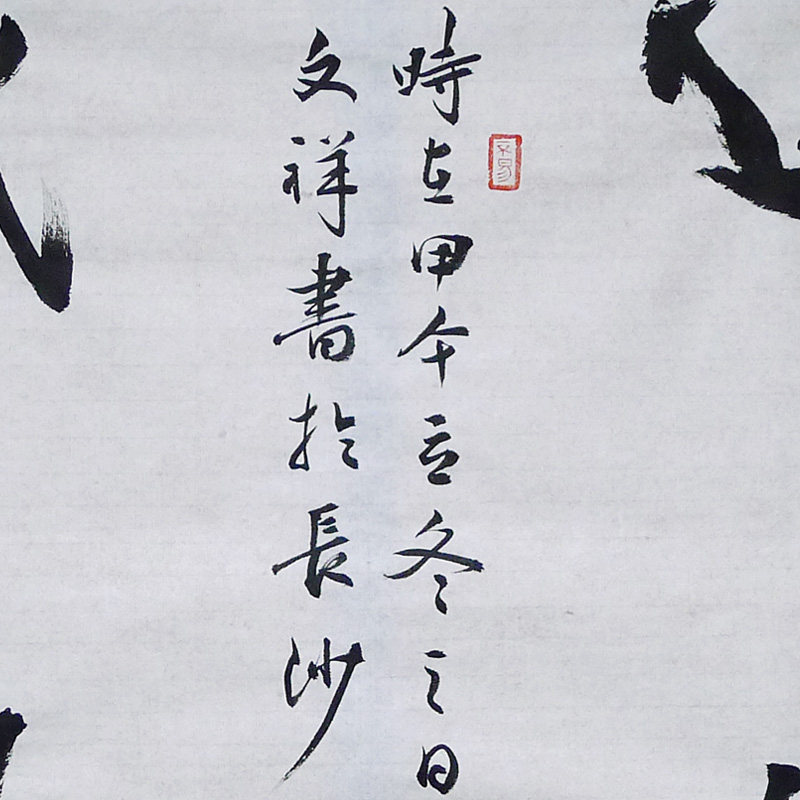 時在甲午立冬之日
文祥書於長沙